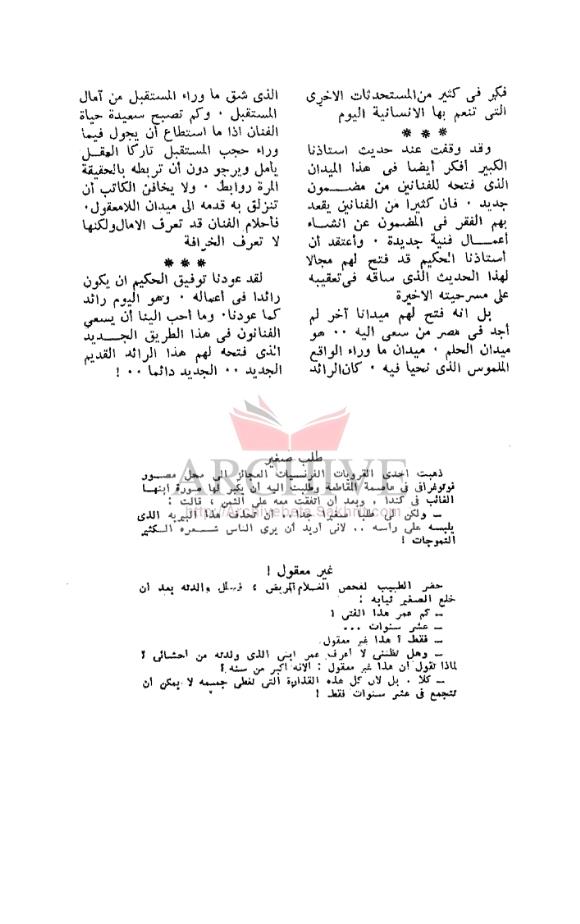 فكر فى كثير من المستحدثات الاخرى
التى تنعم بها الانسانية اليوم
* * *
وقد وقفت عند حديث استاذنا
الكبير أفكر أيضا فى هذا الميدان
الذى فتحه للفنانين من مضمون
جديد . فان كثيرا من الفنانين يقعد
بهم الفقر فى المضمون عن انشاء
أعمال فنية جديدة . وأعتقد أن
أستاذنا الحكيم قد فتح لهم مجالا
لهذا الحديث الذى ساقه فى تعقيبه
على مسرحيته الاخيرة
بل انه فتح لهم ميدانا آخر لم
أجد فى مصر من سعى اليه .. هو
ميدان الحلم . ميدان ما وراء الواقع
الملموس الذى نحيا فيه . كان الرائد
الذى شق ما وراء المستقبل من آمال
المستقبل . وكم تصبح سعيدة حياة
الفنان اذا ما استطاع أن يجول فيما
وراء حجب المستقبل تاركا العقل
يأمل ويرجو دون أن تربطه بالحقيقة
المرة روابط . ولا يخافن الكاتب أن
تنزلق به قدمه الى ميدان اللامعقول .
فأحلام الفنان قد تعرف الامال ولكنها
لا تعرف الخرافة
* * *
لقد عودنا توفيق الحكيم ان يكون
رائدا فى أعماله . وهو اليوم رائد
كما عودنا . وما أحب الينا أن يسعى
الفنانون فى هذا الطريق الجديد
الذى فتحه لهم هذا الرائد القديم
الجديد .. الجديد دائما .. !
طلب صغير
ذهبت احدى القرويات الفرنسيات العجائز الى محل مصور
فوتوغرافى فى عاصمة المقاطعة وطلبت اليه أن يكبر لها صورة ابنها
الغائب فى كندا , وبعد أن اتفقت معه على الثمن , قالت :
ARCHIVE
http://Archivebeta.Sakhrit.com
ـ ولكن لى طلبا صغيرا جدا.. أن تحذف هذا البيريه الذى
يلبسه على رأسه .. لانى أريد أن يرى الناس شعره الكثير
التموجات !
غير معقول !
حضر الطبيب لفحص الغلام المريض ، فسأل والدته بعد أن
خلع الصغير ثيابه :
ـ كم عمر هذا الفتى ؟
ـ عشر سنوات ...
ـ فقط ؟ هذا غير معقول.
ـ وهل تظننى لا أعرف عمر ابنى الذى ولدته من أحشائى ؟
لماذا تقول ان هذا غير معقول : ألانه أكبر من سنه ؟
ـ كلا . بل لان كل هذه القذارة التى تغطى جسمه لا يمكن أن
تتجمع فى عشر سنوات فقط !